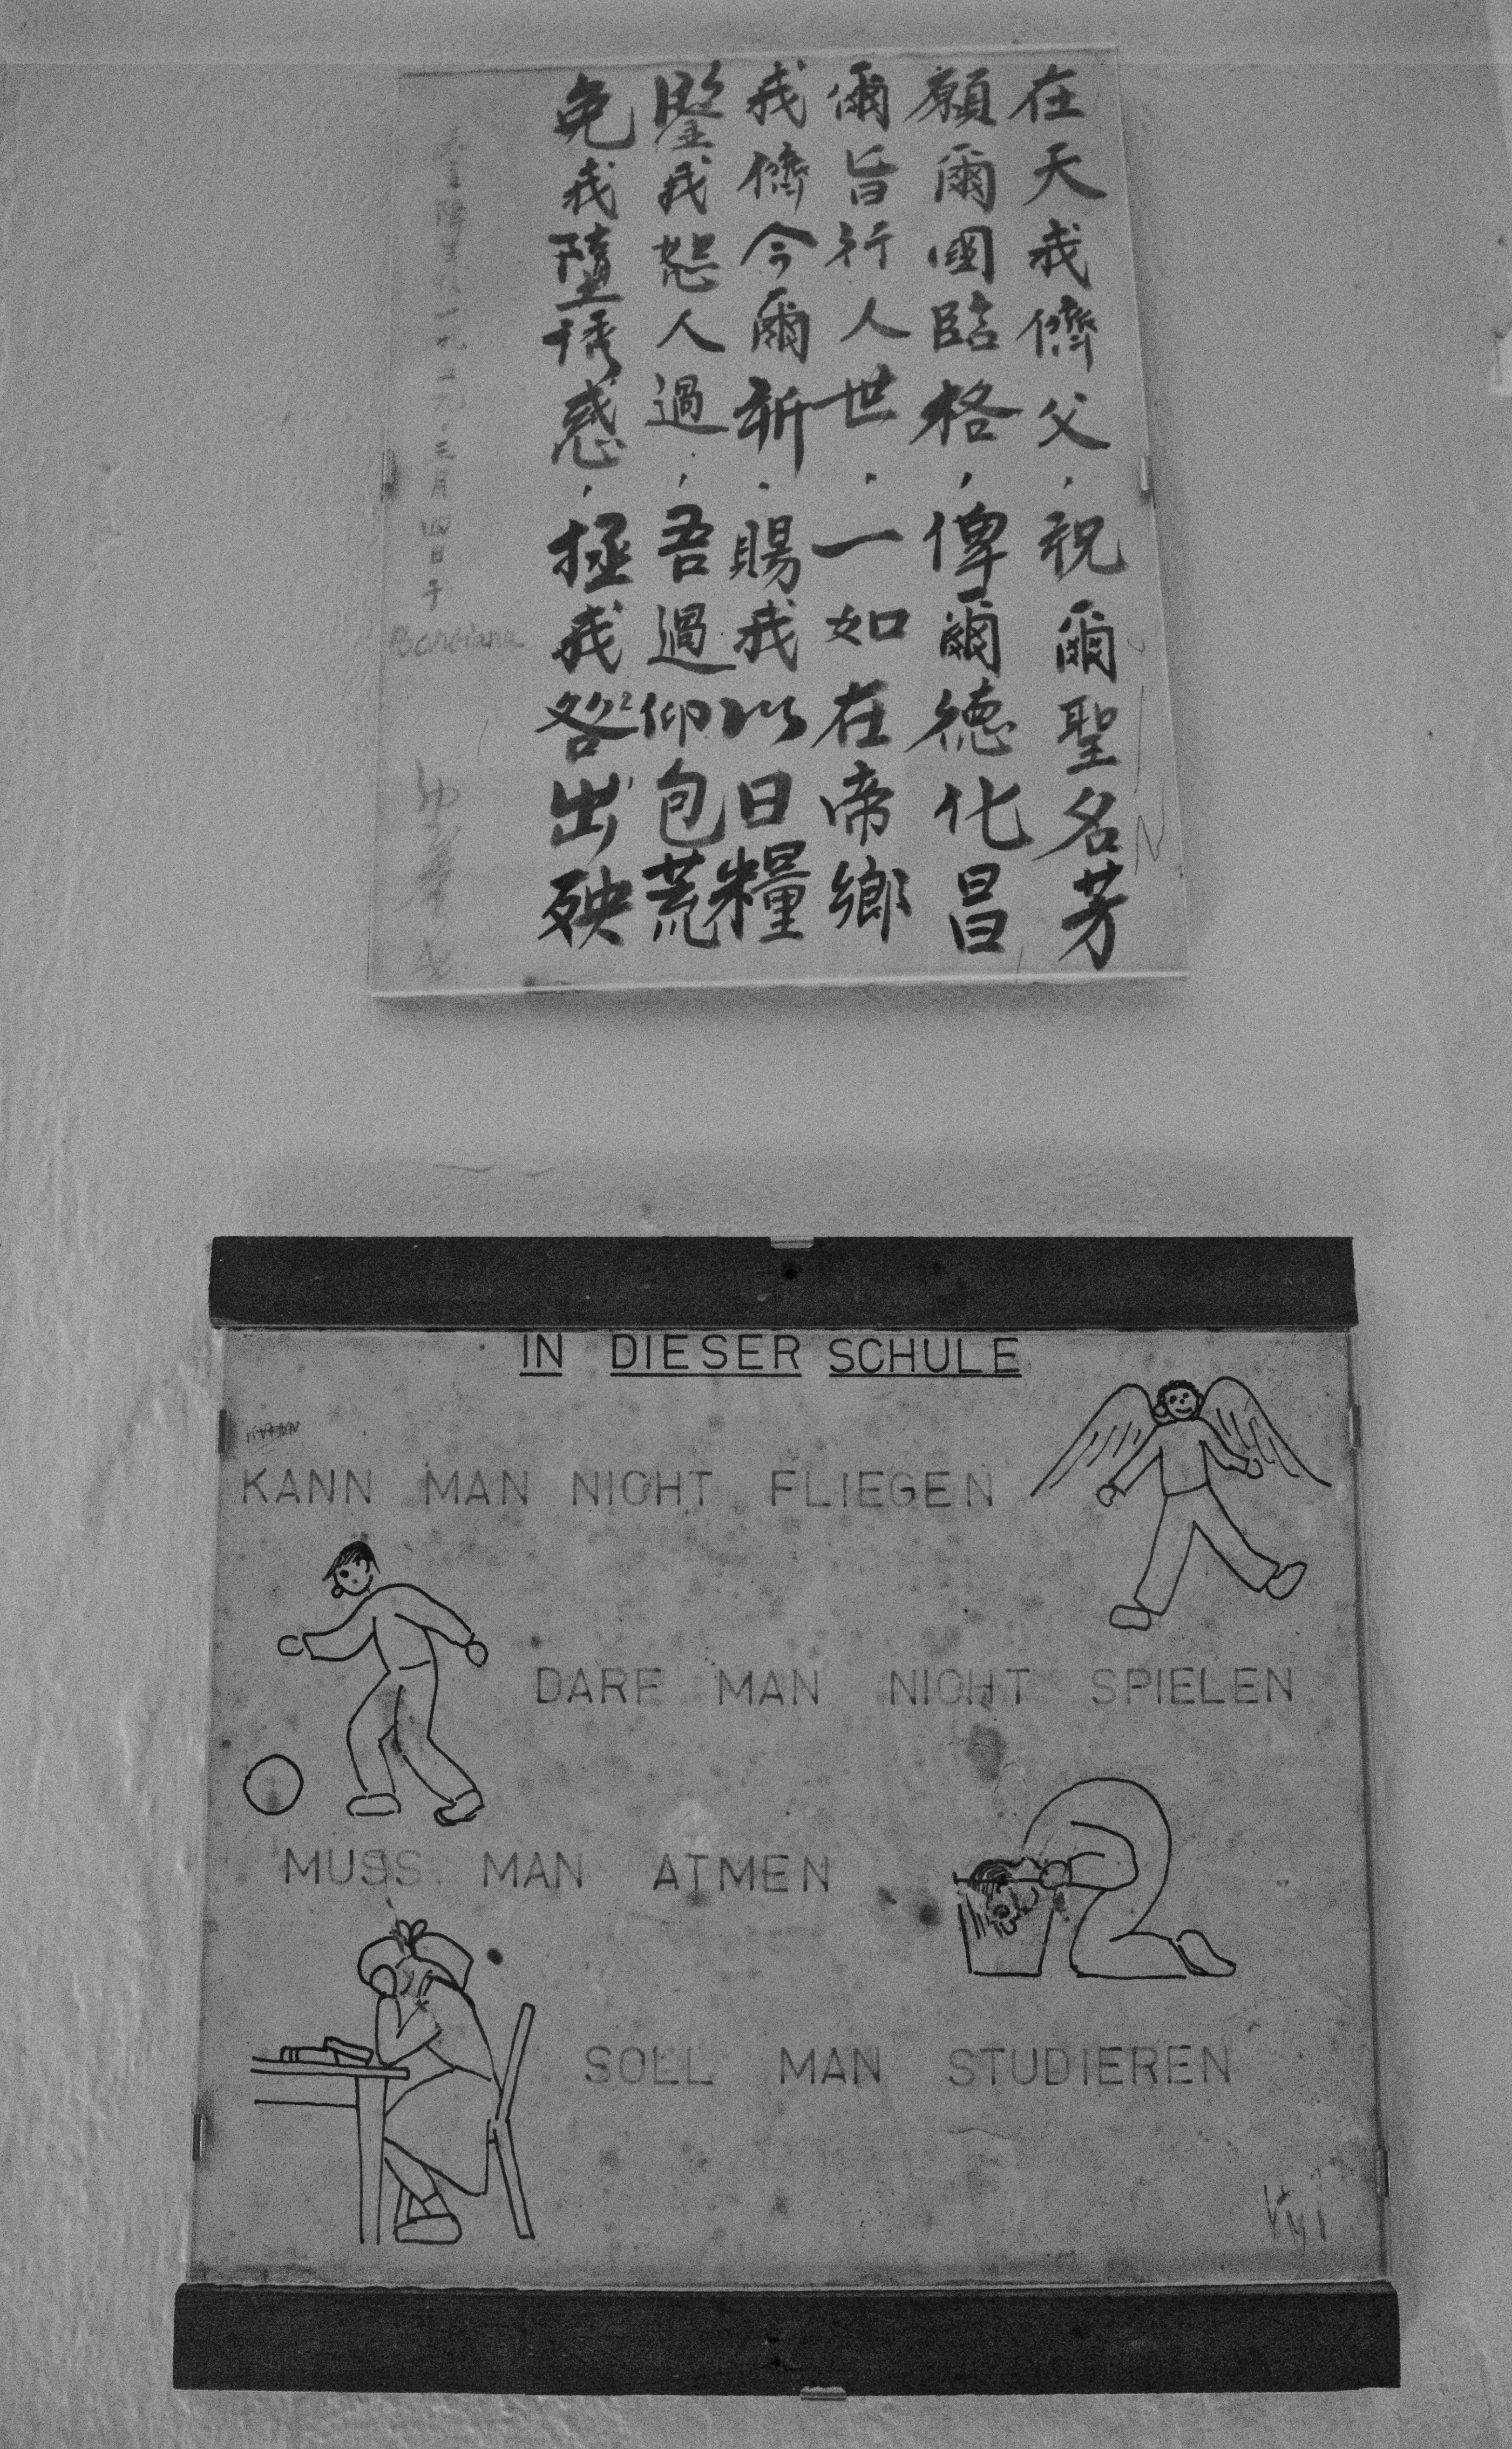 在天我儕父，祝爾聖名芳
願爾國臨格，俾爾德化昌
爾旨行人世．一如在帝鄉
我儕今爾祈．賜我以日糧
鑒我恕人過，吾過仰包荒
免我墮誘惑，拯我咎出殃
天主降生後一九一九．三月四日于
Barbiana
IN DIESER SCHULE
KANN MAN NICHT FLIEGEN
DARF MAN NICHT SPIELEN
MUSS MAN ATMEN
SOLL MAN STUDIEREN